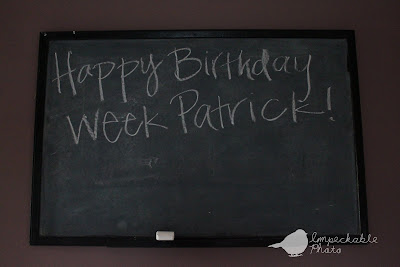 Happy Birthday
Week Patrick!
Impeckable
Photo